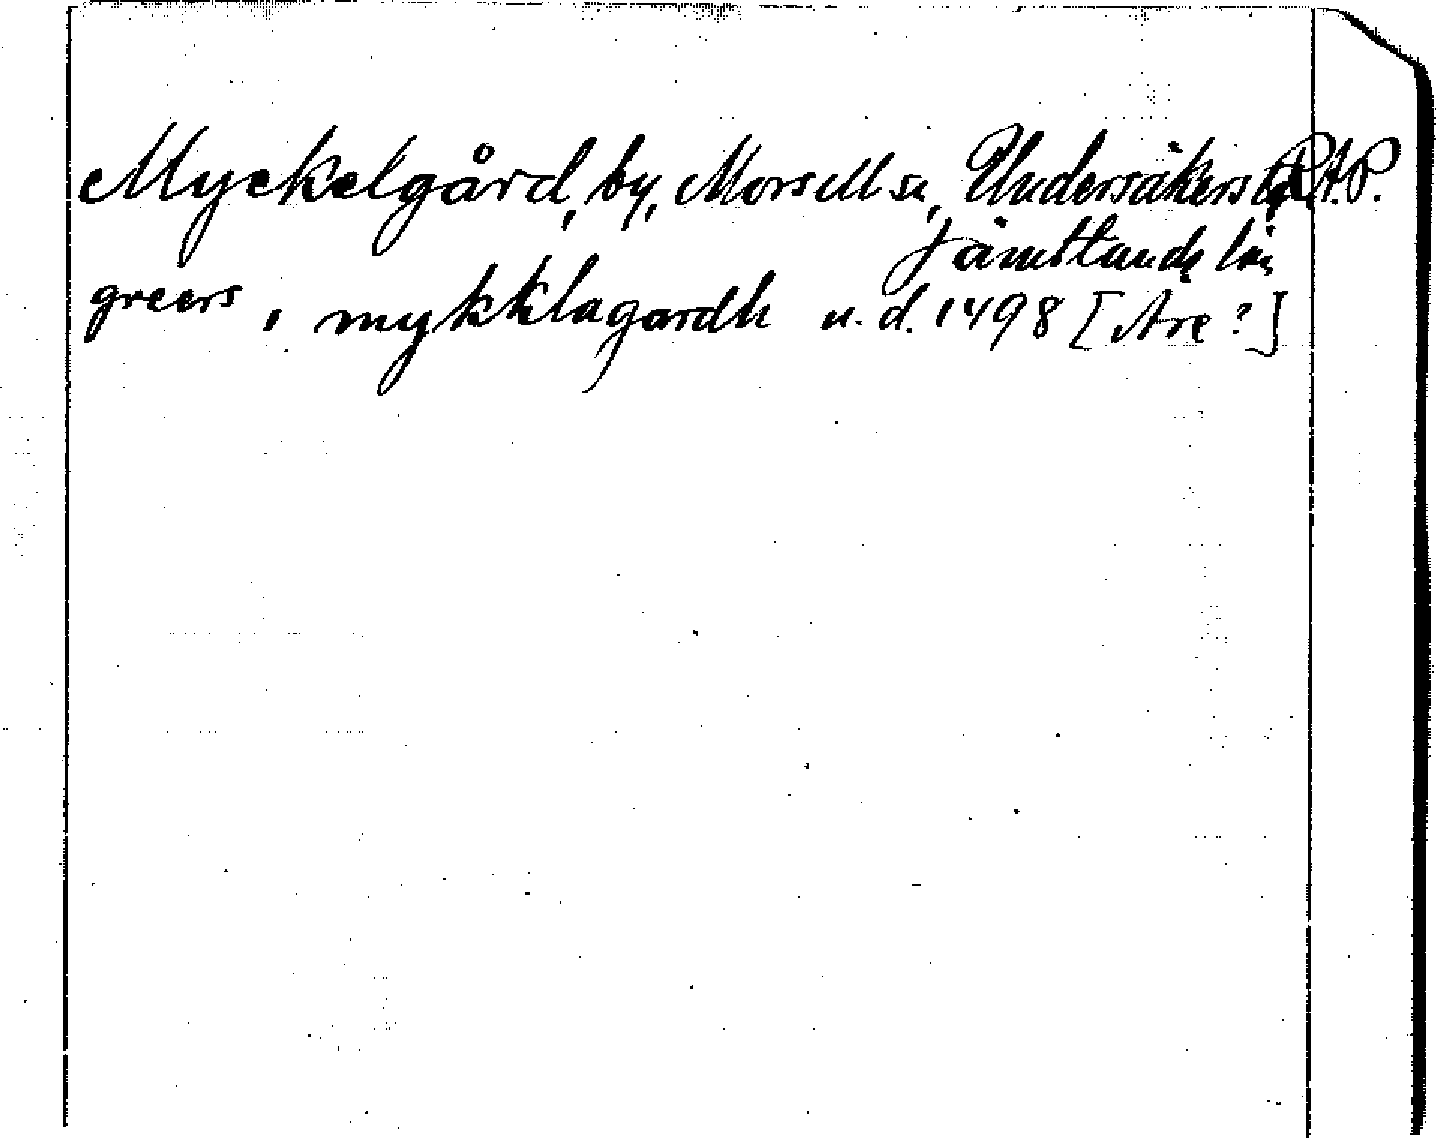 Myckelgård, by, Morsill sn, Undersåkers tg R.A.P.
Jämtlands län
greers, i mykklagardh u. d. 1498 [Are?]